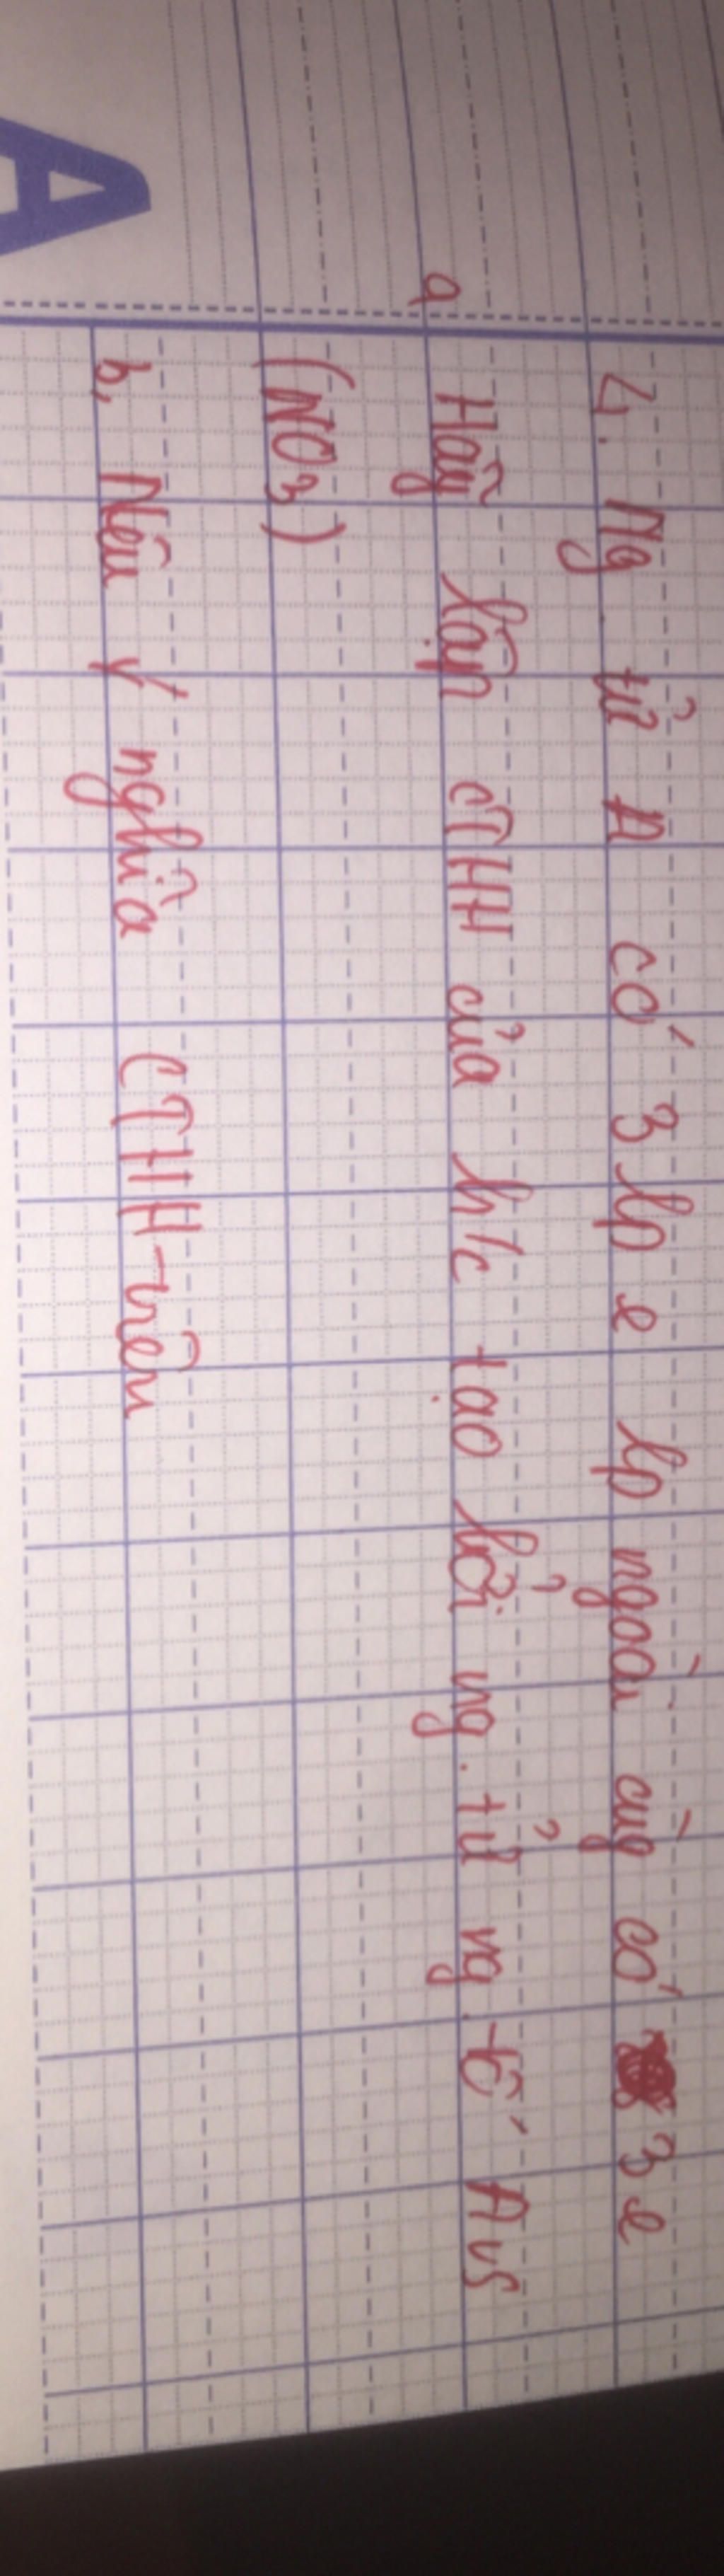 4. Ng. tử A có 3 lp e lp ngoài cùg có 3 e
a Hãy lập CTHH của h/c tạo bởi ng. tử ng. tố A vs
(NO3)
b, Nêu ý nghĩa CTHH trên
A